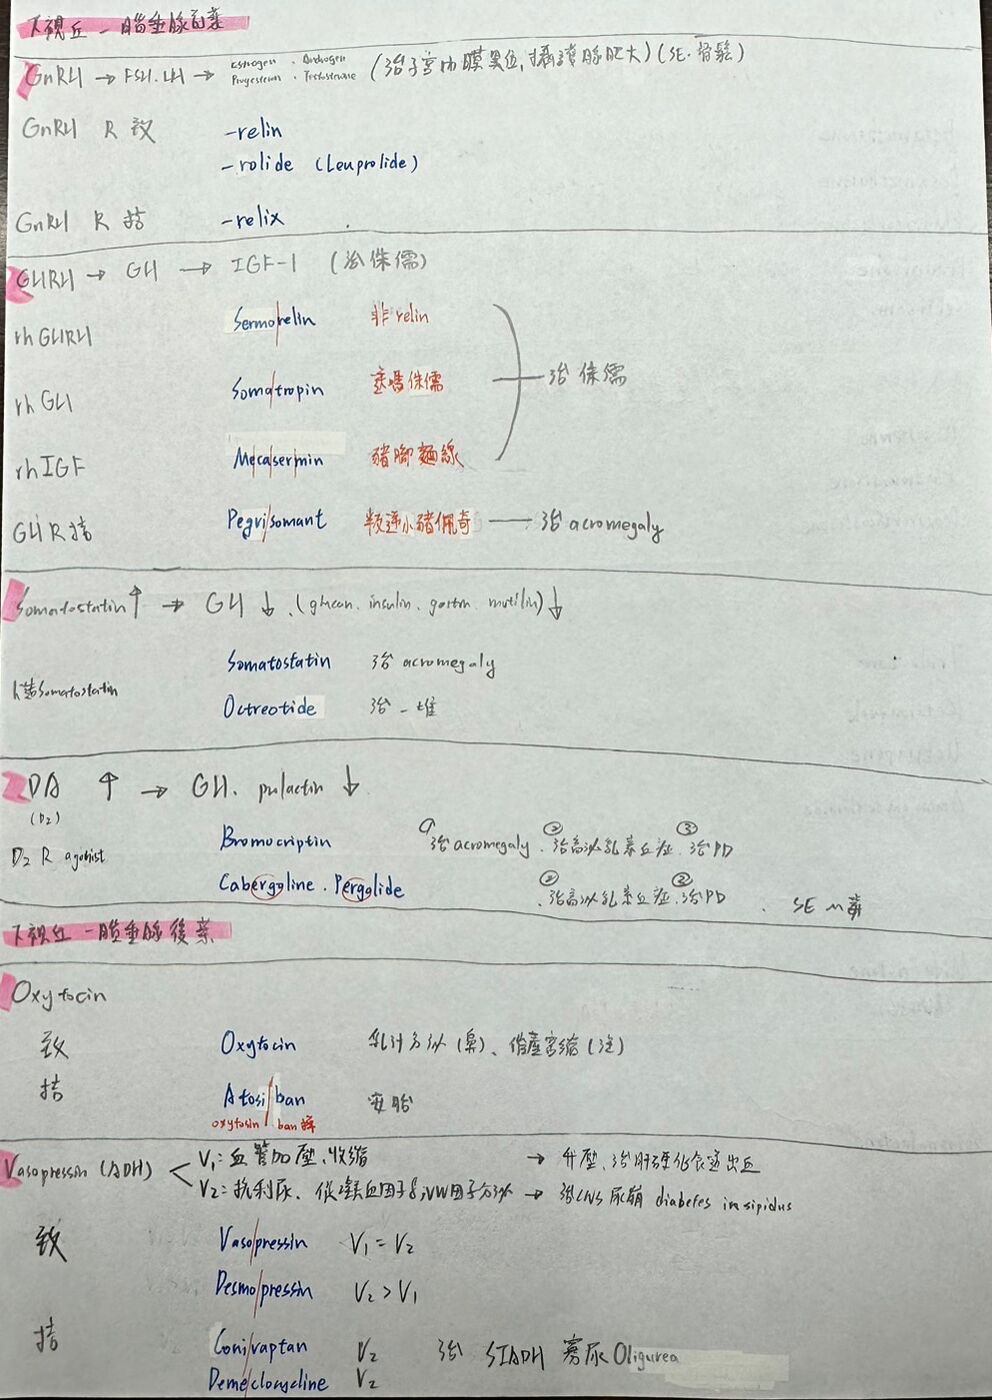 下視丘－腦垂腺前葉
GnRH → FSH.LH → Estrogen . Androgen (治子宮內膜異位, 攝護腺肥大) (SE.骨鬆)
Progesterone . Testosterone
GnRH R 致 -relin
-rolide (Leuprolide)
GnRH R 拮 -relix
GHRH → GH → IGF-1 (治侏儒)
rhGHRH Sermo/relin 非relin
治侏儒
rhGH Soma/tropin 侏儒
rhIGF Me/ca/ser/min 豬腳麵線
GH R 拮 Pegvi/somant 小豬佩奇 — 治 acromegaly
Somatostatin↑ → GH ↓ .(glucan. insulin. gastrin. motilin)↓
Somatostatin 治 acromegaly
Somatostatin
Octreotide 治一堆
DA ↑ → GH. prolactin ↓
(D2)
D2 R agonist Bromocriptin ①治acromegaly .②治高泌乳素血症 .③治PD
Cabergoline . Pergolide ①.治高泌乳素血症 .②治PD . SE 心毒
下視丘－腦垂腺後葉
Oxytocin
致 Oxytocin 乳汁分泌(鼻)、催產宮縮(注)
拮 Atosi/ban 安胎
oxytosin ban掉
Vasopressin (ADH) V1=血管加壓、收縮 → 升壓、治肝硬化食道出血
V2=抗利尿、促凝血因子8,vW因子分泌 → 治CNS尿崩 diabetes insipidus
致 Vaso/pressin V1=V2
Desmo/pressin V2>V1
拮 Coni/vaptan V2 治 SIADH 寡尿Oligurea
Deme/clocycline V2